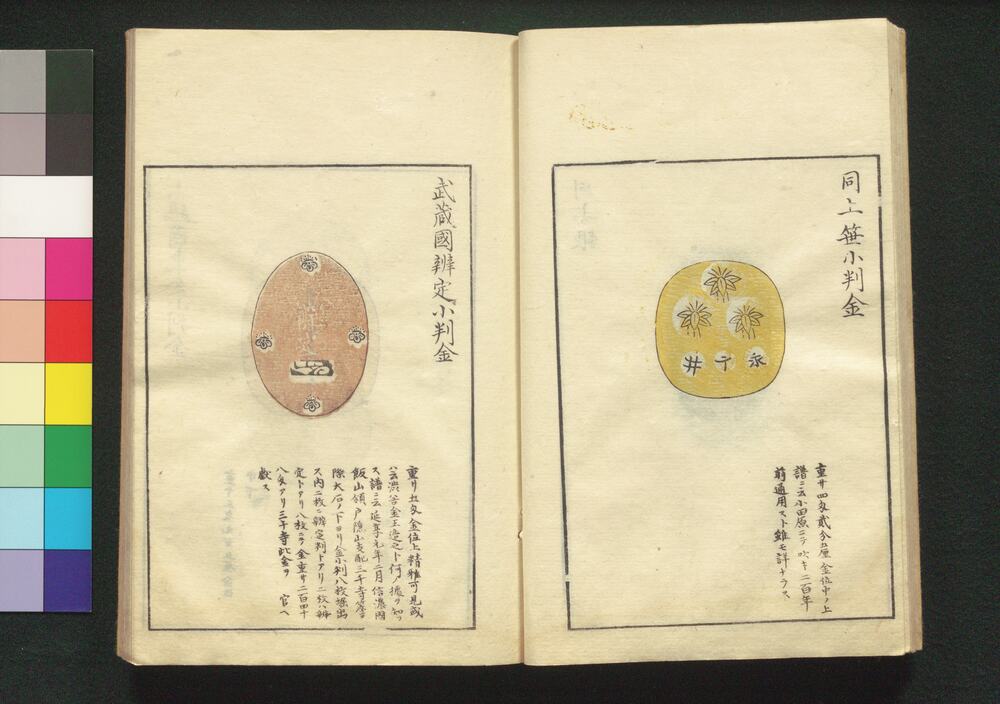 同上笹小判金
永
丁
井
重サ四匁貳分五厘金位中ノ上
譜ニ云小田原ニテ吹キ二百年
前通用スト雖モ詳ナラス
武蔵國辨定小判金
重サ五匁金位上精雅可見或
ハ云澁谷金王造之ト何ノ據ヲ知
ス譜ニ云延享元年二月信濃國
飯山領戸隠山支配三千寺
際大石ノ下ヨリ金小判八枚堀出
ス内二枚ニ辨定判トアリ二枚ハ辨
定トアリ八枚ニテ金重サ二百四十
八匁アリ三千寺此金ヲ官ヘ
獻ス